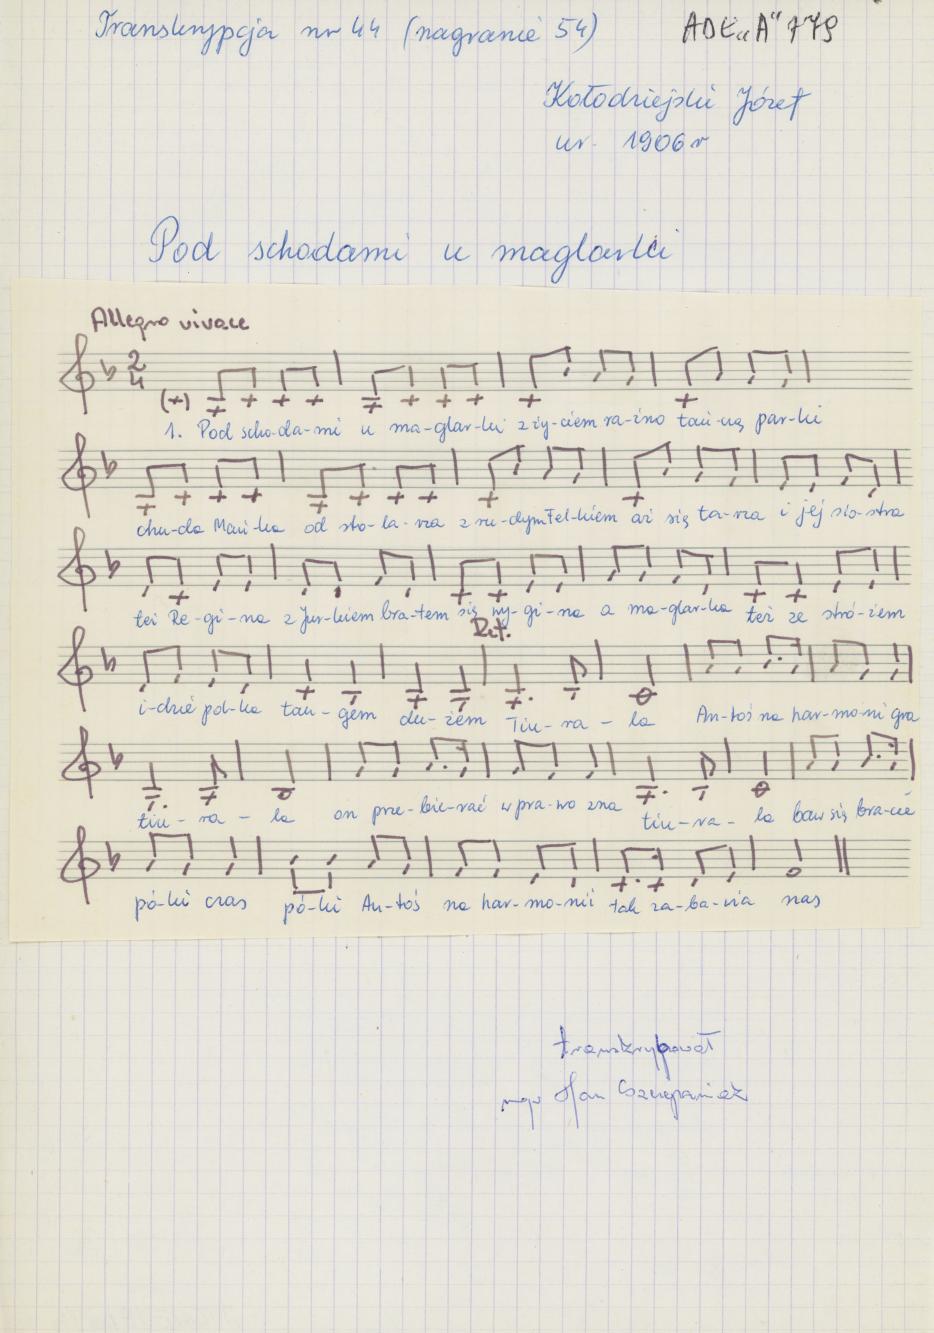 Transkrypcja nr 44 (nagranie 54) ADE „A" 779
Kołodziejski Józef
ur. 1906 r
Pod schodami u maglarki
Allegro vivace
2
4
(+)
1. Pod scho-da-mi u ma-glar-ki z ży-ciem ra-źno tań-czą par-ki
chu-da Mań-ka od sto-la-rza z ru-dym Felkiem aż się ta-rza i jej sio-stra
też Re-gi-na z Jur-kiem bra-tem się wy-gi-na a ma-glar-ka też ze stró-żem
Rit.
i-dzie pol-ka tan-giem du-żem Tiu-ra-la An-toś na har-mo-ni gra
tiu-ra-la on prze-bie-rać w pra-wo zna tiu-ra-la baw się bra-cie
pó-ki czas pó-ki An-toś na har-mo-nii tak za-ba-via nas
transkrybował
mgr Jan Szczepaniak